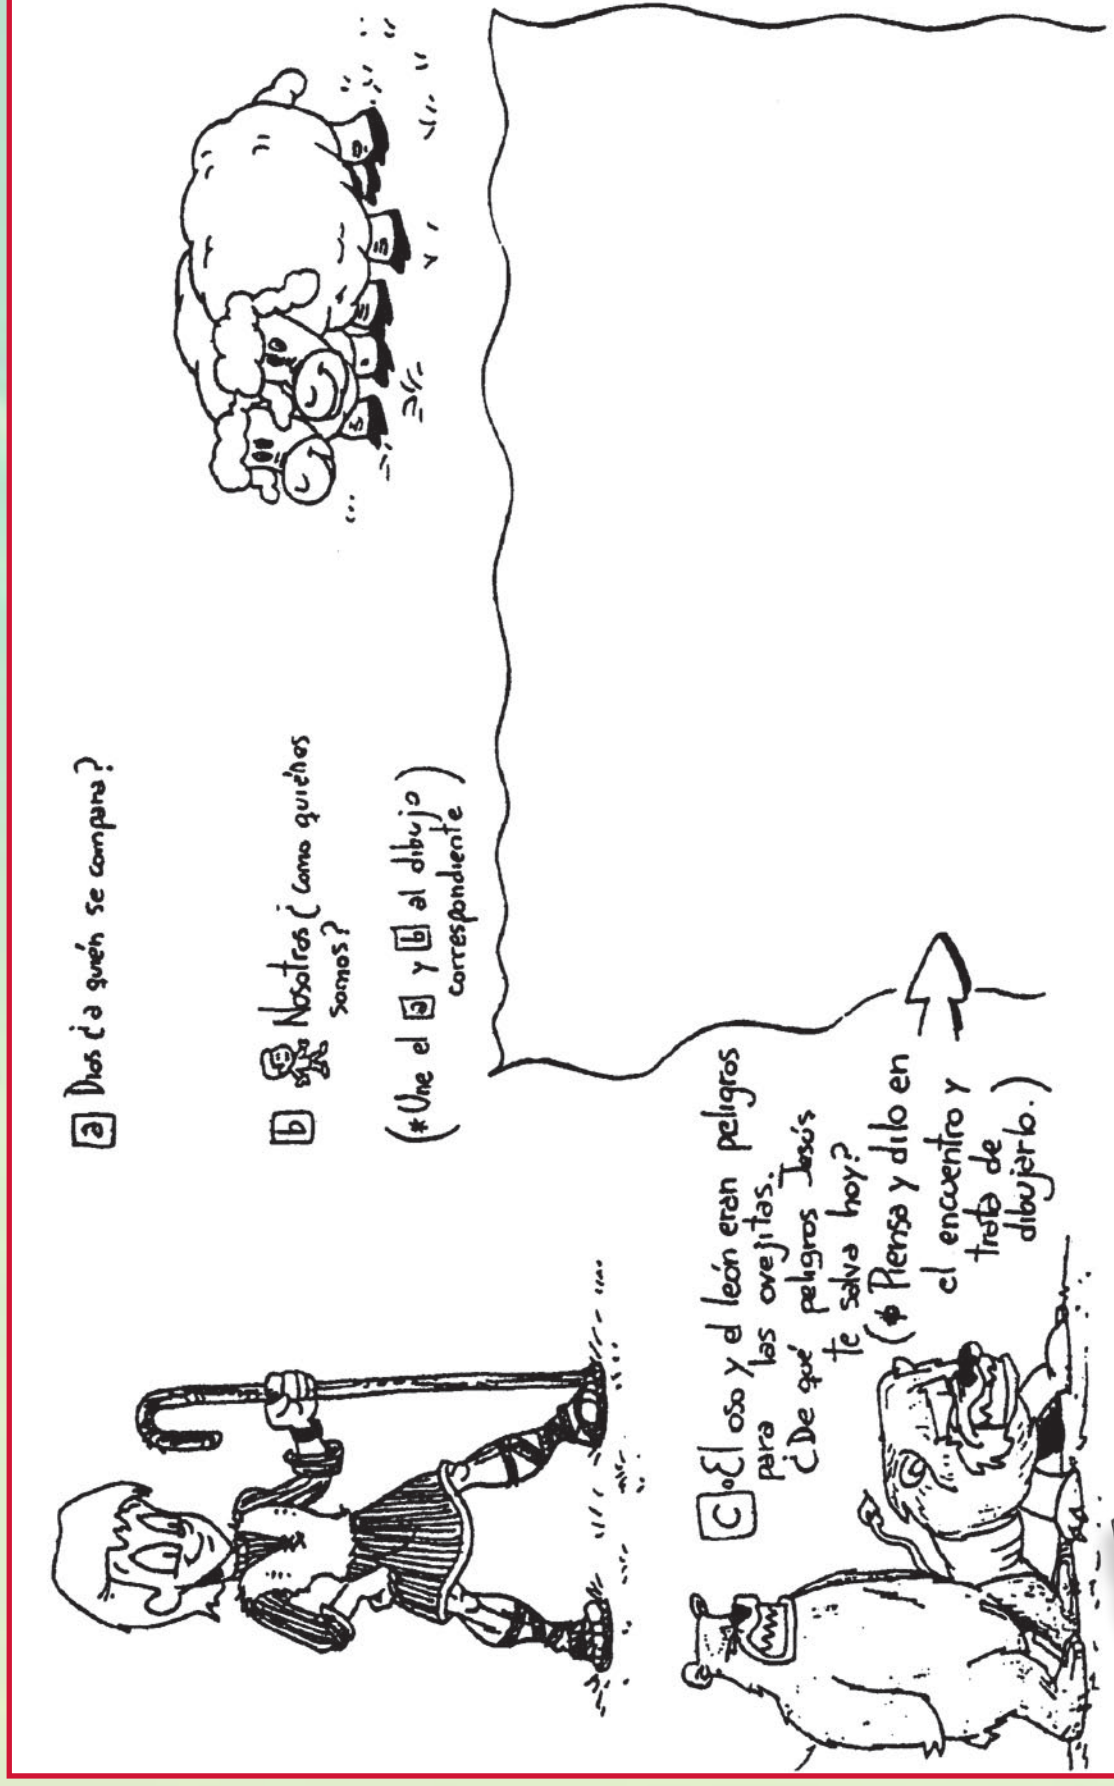 a Dios ¿a quién se compara?
b Nosotros ¿como quiénes
somos?
(*Une el a y b al dibujo
correspondiente)
C •El oso y el león eran peligros
para las ovejitas.
¿De qué peligros Jesús
te salva hoy?
(* Piensa y dilo en
el encuentro y
trata de
dibujarlo.)